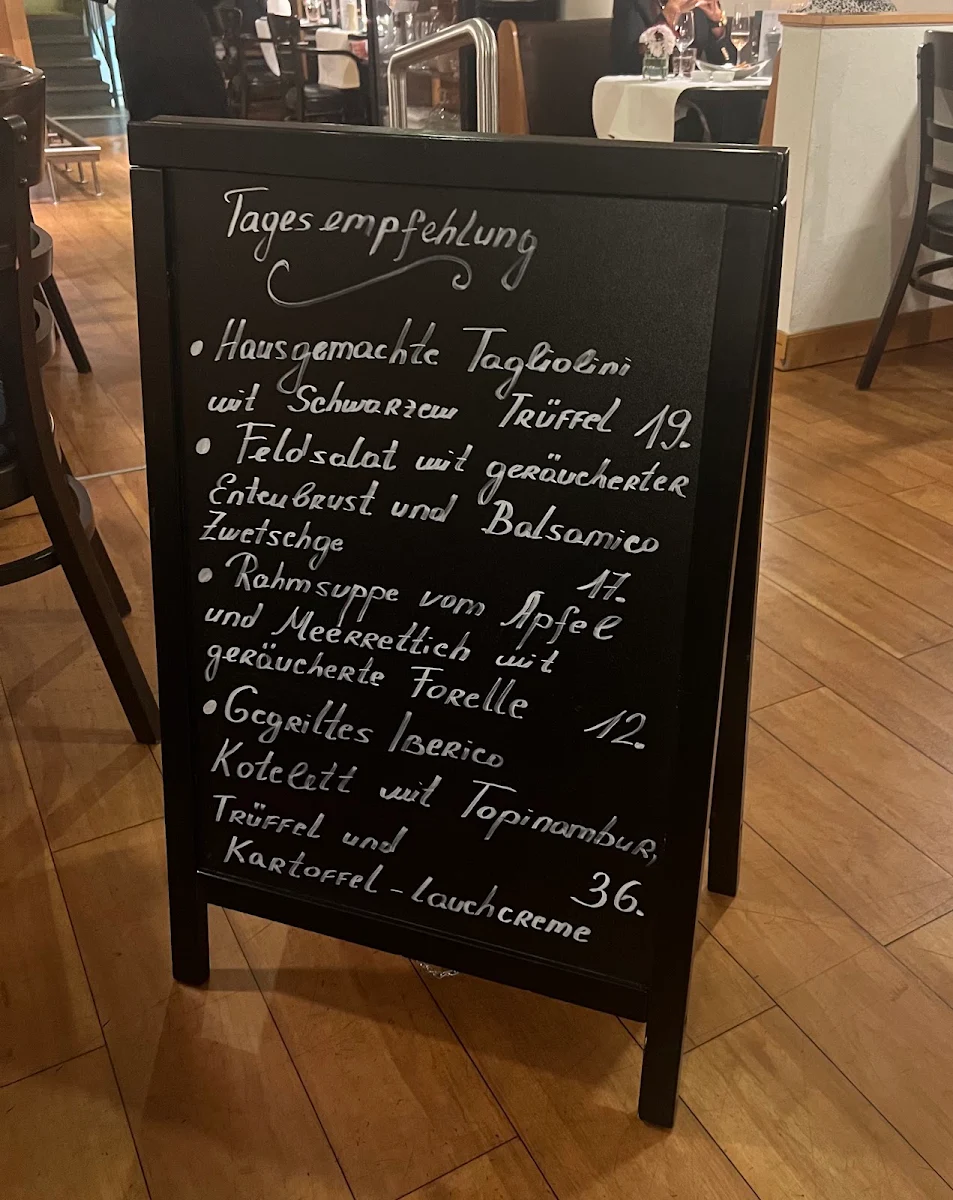 Tagesempfehlung
• Hausgemachte Tagliolini
mit Schwarzem Trüffel 19.
• Feldsalat mit geräucherter
Entenbrust und Balsamico
Zwetschge 17.
• Rahmsuppe vom Apfel
und Meerrettich mit
geräucherte Forelle 12.
• Gegrilltes Iberico
Kotelett mit Topinambur,
Trüffel und 36.
Kartoffel-Lauchcreme